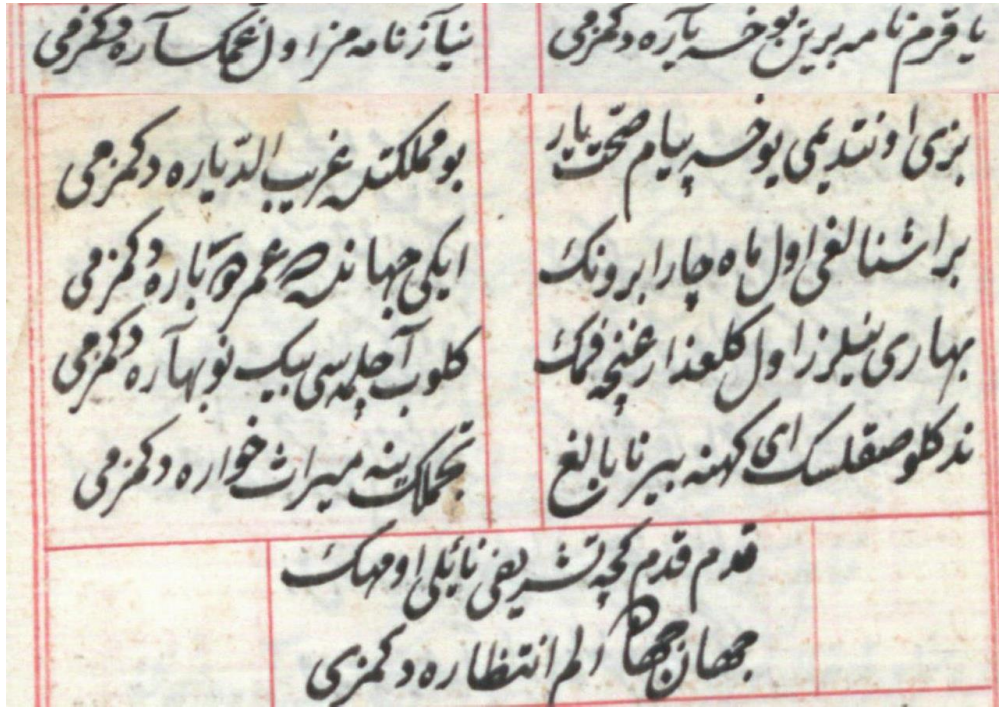 نامه برین یوخسه یاره دکمزمی نیازنامه مز اول غمکساره دکمزمی
بزی اونتدیمی یوخسه پیام صحت یار بو مملکتده غریب الدیاره دکمزمی
بر اشنالغی اول ماه چار ابرونک ایکی جهانده عمر دوباره دکمزمی
بهاری نیلرز اول کلعذار غنچه فمک کلوب آچلمه سی بیک نوبهاره دکمزمی
نه کلو صقلسک ای کهنه پیر نابالغ تجملک ینه میراث خواره دکمزمی
قدم قدم کجه تشریفی نائلی اومهک
جهان جهان الم انتظاره دکمزی